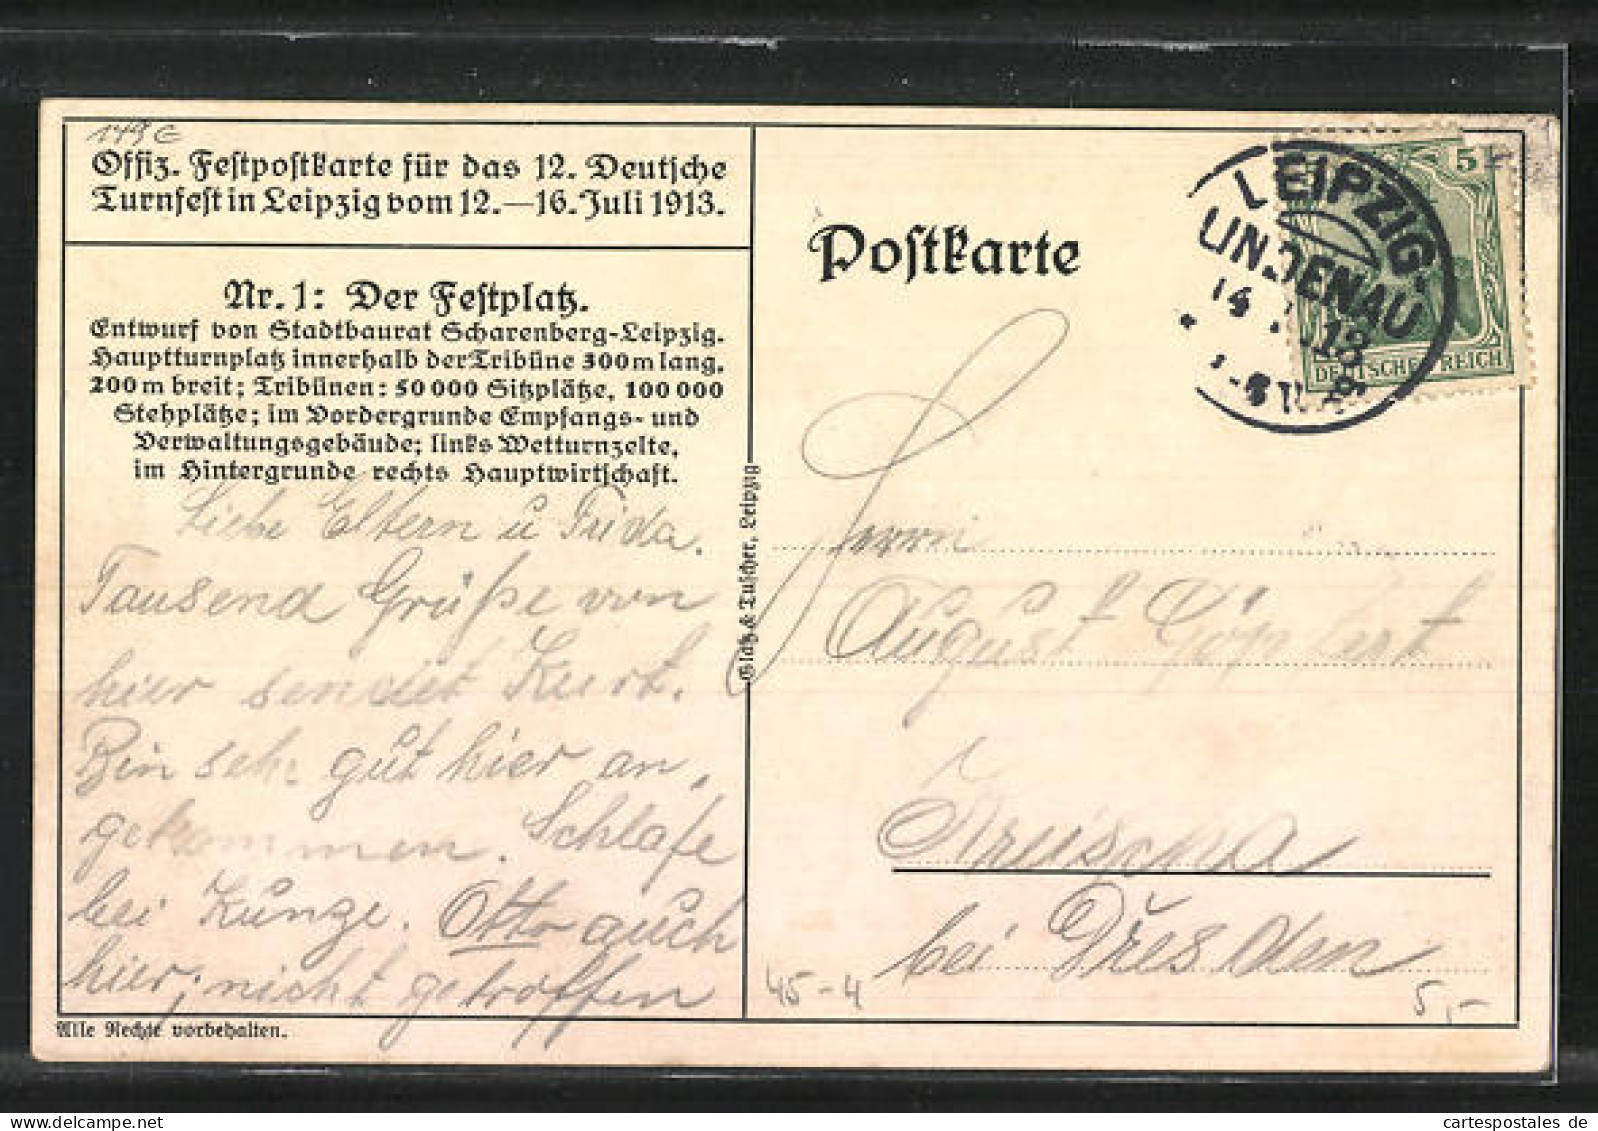 149 G
Offiz. Festpostkarte für das 12. Deutsche
Turnfest in Leipzig vom 12.—16. Juli 1913.
Nr. 1: Der Festplatz.
Entwurf von Stadtbaurat Scharenberg-Leipzig.
Hauptturnplatz innerhalb der Tribüne 300 m lang,
200 m breit; Tribünen: 50 000 Sitzplätze, 100 000
Stehplätze; im Vordergrunde Empfangs- und
Verwaltungsgebäude; links Wetturnzelte,
im Hintergrunde rechts Hauptwirtschaft.
Liebe Eltern u Frida.
Tausend Grüße von
hier sendet Kurt.
Bin sehr gut hier an,
gekommen. Schlafe
bei Kunze. Otto auch
hier; nicht getroffen
Alle Rechte vorbehalten.
Glatz & Tuscher, Leipzig
Postkarte
LEIPZIG-
LINDENAU
14
13
5
DEUTSCHES REICH
Herrn
August
bei Dresden
45-4
5,-
cartespostales de